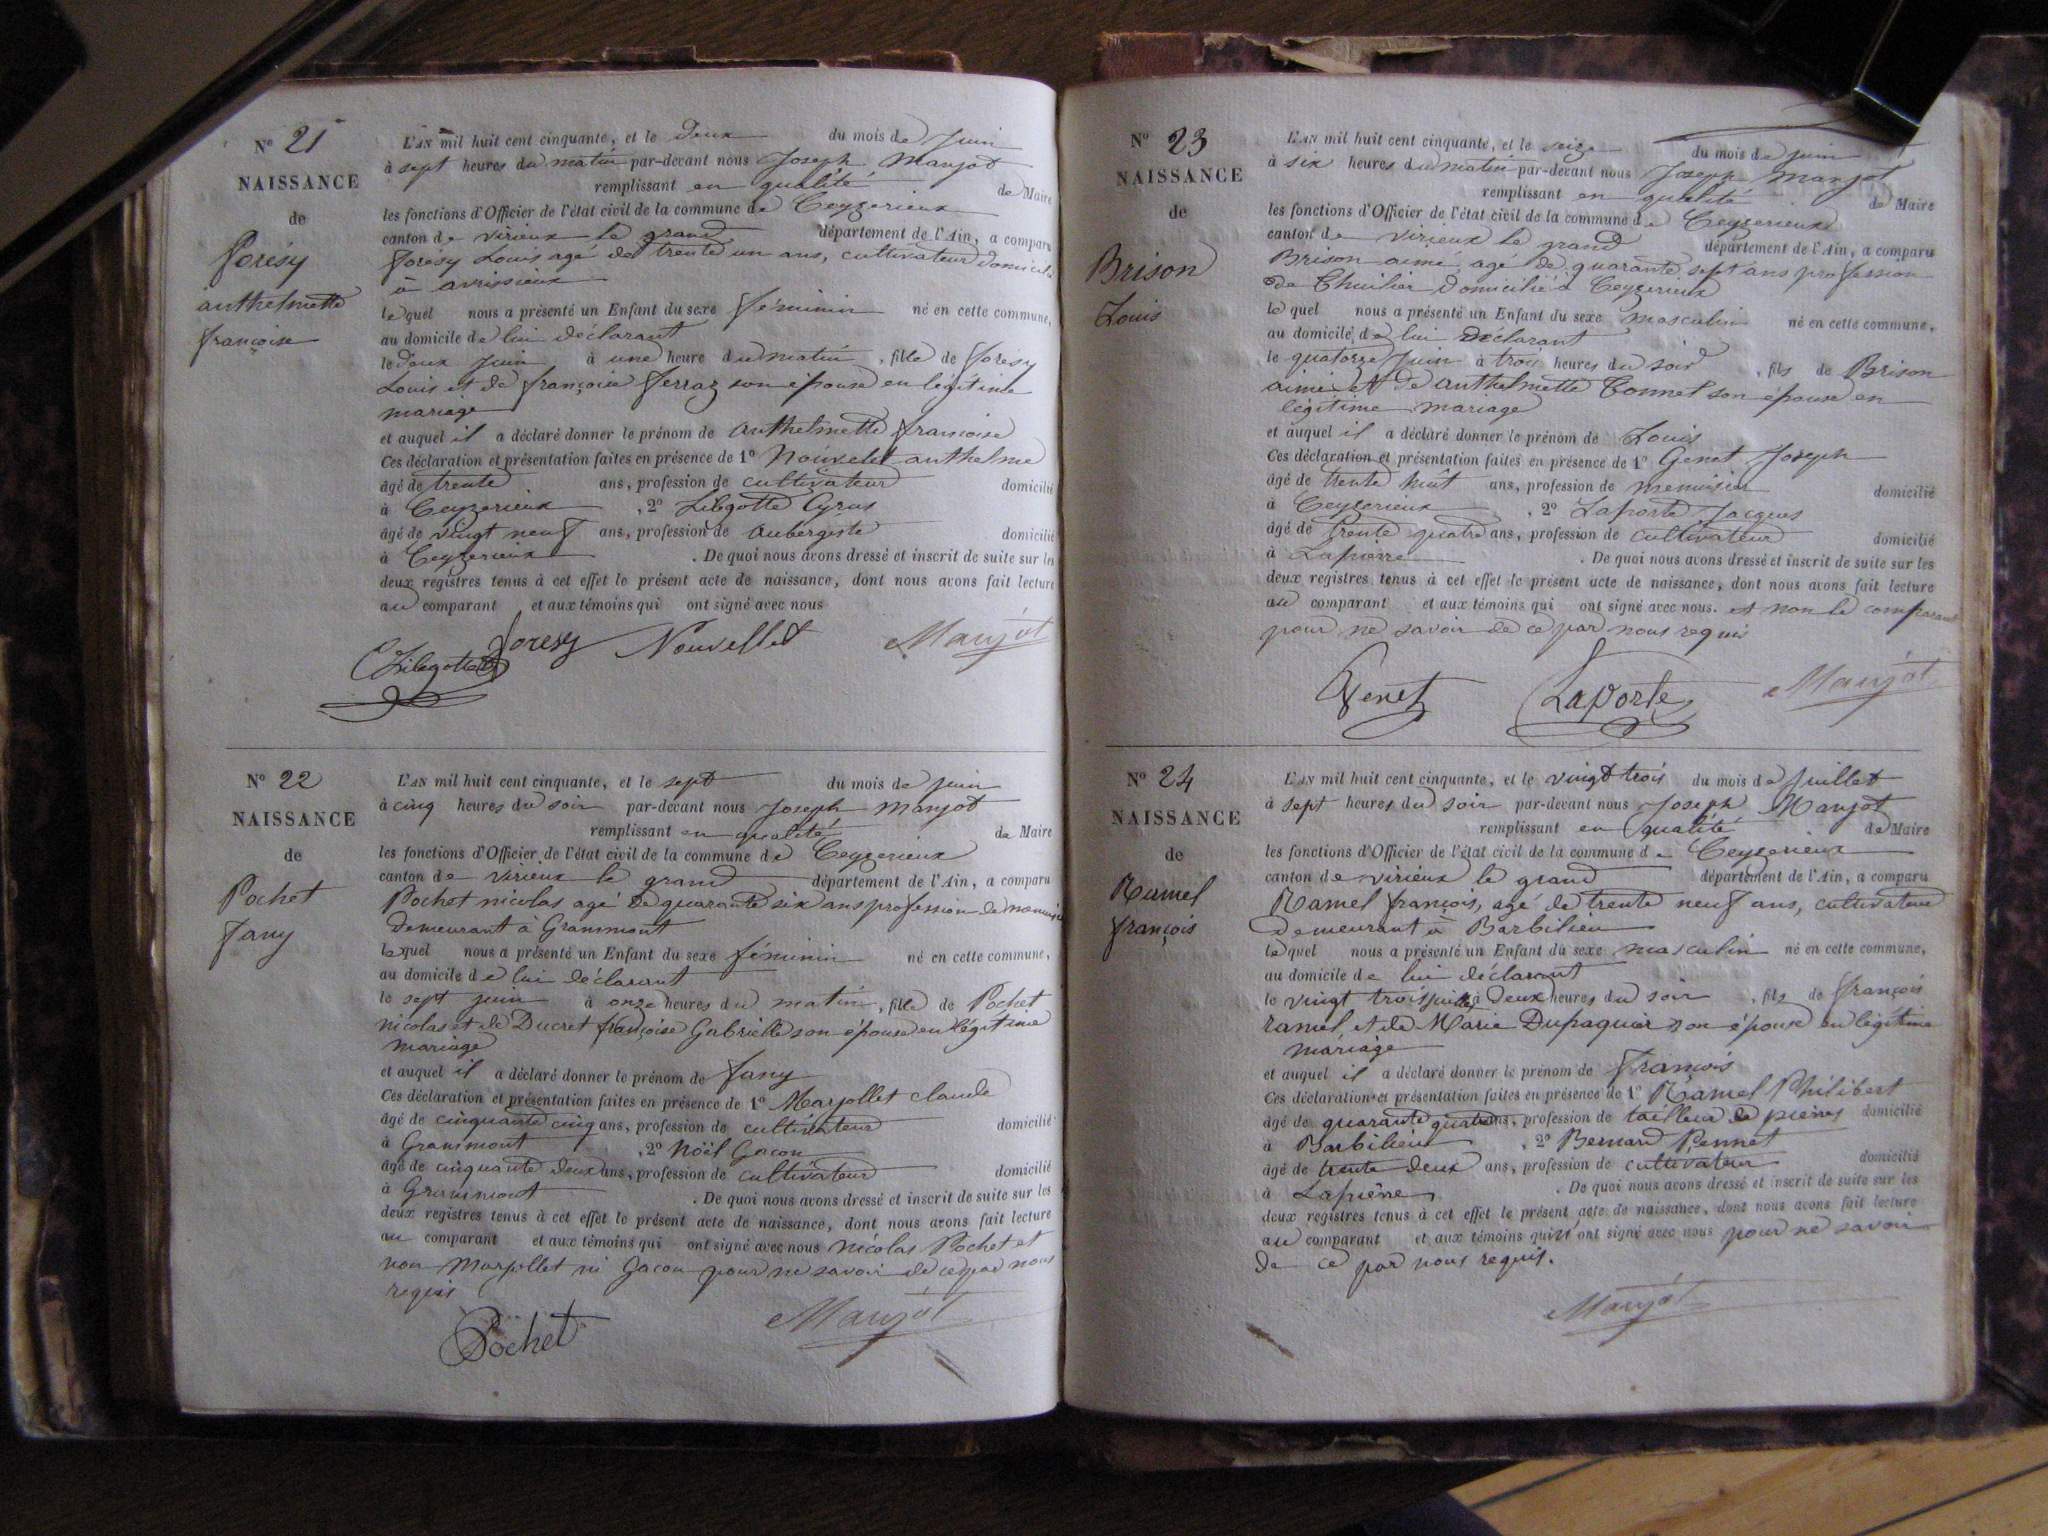 N° 21
NAISSANCE
de
Forésy
anthelmette
françoise
L'AN mil huit cent cinquante, et le deux du mois de Juin
à sept heures du matin par-devant nous Joseph Manjot
remplissant en qualité de Maire
les fonctions d'Officier de l'état civil de la commune de Ceyzerieux
canton de virieux le grand département de l'Ain, a comparu
foresy Louis agé de trente un ans, cultivateur domicilié
à avrissieux
lequel nous a présenté un Enfant du sexe féminin né en cette commune,
au domicile de lui déclarant
le deux juin à une heure du matin, fille de forésy
Louis et de françoise ferraz son épouse en légitime
mariage
et auquel il a déclaré donner le prénom de anthelmette françoise
Ces déclaration et présentation faites en présence de 1° Nouvelet anthelme
âgé de trente ans, profession de cultivateur domicilié
à Ceyzerieux, 2° Libgotte Cyrus
âgé de vingt neuf ans, profession de aubergiste domicilié
à Ceyzerieux. De quoi nous avons dressé et inscrit de suite sur les
deux registres tenus à cet effet le présent acte de naissance, dont nous avons fait lecture
au comparant et aux témoins qui ont signé avec nous
foresy Nouvellet Manjot
Libgotte
N° 22
NAISSANCE
de
Pochet
Fany
L'AN mil huit cent cinquante, et le sept du mois de juin
à cinq heures du soir par-devant nous Joseph Manjot
remplissant en qualité de Maire
les fonctions d'Officier de l'état civil de la commune de Ceyzerieux
canton de virieux le grand département de l'Ain, a comparu
Pochet nicolas agé de quarante six ans profession de
demeurant à Grammont
lequel nous a présenté un Enfant du sexe féminin né en cette commune,
au domicile de lui déclarant
le sept juin à onze heures du matin, fille de Pochet
nicolas et de Ducret françoise Gabrielle son épouse en légitime
mariage
et auquel il a déclaré donner le prénom de fany
Ces déclaration et présentation faites en présence de 1° Marjollet claude
âgé de cinquante cinq ans, profession de cultivateur domicilié
à Grammont, 2° Noël Gacon
âgé de cinquante deux ans, profession de cultivateur domicilié
à Grammont. De quoi nous avons dressé et inscrit de suite sur les
deux registres tenus à cet effet le présent acte de naissance, dont nous avons fait lecture
au comparant et aux témoins qui ont signé avec nous nicolas Pochet et
non Marjollet ni Gacon pour ne savoir de ce par nous
requis
Pochet Manjot
N° 23
NAISSANCE
de
Brison
Louis
L'AN mil huit cent cinquante, et le seize du mois de juin
à six heures du matin par-devant nous Joseph Manjot
remplissant en qualité de Maire
les fonctions d'Officier de l'état civil de la commune de Ceyzerieux
canton de virieux le grand département de l'Ain, a comparu
Brison aimé, agé de quarante sept ans profession
de thuilier domicilié à Ceyzerieux
lequel nous a présenté un Enfant du sexe masculin né en cette commune,
au domicile de lui déclarant
le quatorze juin à trois heures du soir, fils de Brison
aimé et de anthelmette Connet son épouse en
légitime mariage
et auquel il a déclaré donner le prénom de Louis
Ces déclaration et présentation faites en présence de 1° Genet Joseph
âgé de trente huit ans, profession de menuisier domicilié
à Ceyzerieux, 2° Laporte Jacques
âgé de trente quatre ans, profession de cultivateur domicilié
à Lapierre. De quoi nous avons dressé et inscrit de suite sur les
deux registres tenus à cet effet le présent acte de naissance, dont nous avons fait lecture
au comparant et aux témoins qui ont signé avec nous. et non le comparant
pour ne savoir de ce par nous requis
Genet Laporte Manjot
N° 24
NAISSANCE
de
Ramel
françois
L'AN mil huit cent cinquante, et le vingt trois du mois de Juillet
à sept heures du soir par-devant nous Joseph Manjot
remplissant en qualité de Maire
les fonctions d'Officier de l'état civil de la commune de Ceyzerieux
canton de virieux le grand département de l'Ain, a comparu
Ramel françois, agé de trente neuf ans, cultivateur
demeurant à Barbilieu
lequel nous a présenté un Enfant du sexe masculin né en cette commune,
au domicile de lui déclarant
le vingt trois juillet à deux heures du soir, fils de françois
ramel et de Marie Dupaquier son épouse en légitime
mariage
et auquel il a déclaré donner le prénom de françois
Ces déclaration et présentation faites en présence de 1° Ramel Philibert
âgé de quarante quatre ans, profession de tailleur de pierres domicilié
à Barbilieu, 2° Bernard Pennet
âgé de trente deux ans, profession de cultivateur domicilié
à Lapierre. De quoi nous avons dressé et inscrit de suite sur les
deux registres tenus à cet effet le présent acte de naissance, dont nous avons fait lecture
au comparant et aux témoins qui n'ont signé avec nous pour ne savoir
de ce par nous requis.
Manjot